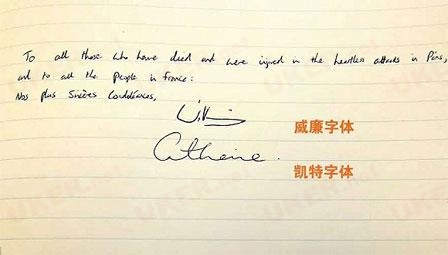 To all those who have died and were injured in the heartless attacks in Paris,
and to all the people in france:
Nos plus Sincères Condoléances,
威廉字体
Catherine.
凯特字体